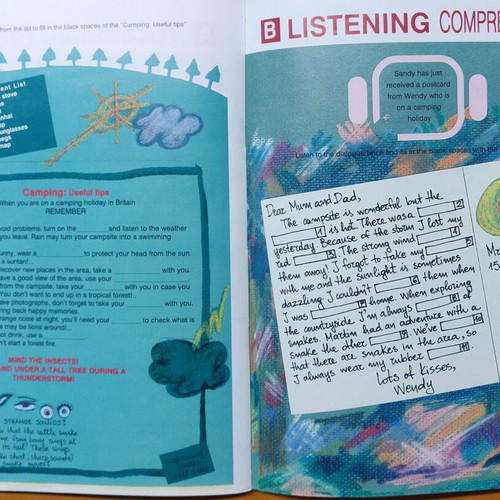 from the list to fill in the black spaces of the "Camping: Useful tips"
ent List
stove
nhat
unglasses
pegs
map
Camping: Useful tips
When you are on a camping holiday in Britain
REMEMBER
void problems, turn on the and listen to the weather
you leave. Rain may turn your campsite into a swimming
unny, wear a to protect your head from the sun.
a suntan!..
discover new places in the area, take a with you.
ave a good view of the area, use your
from the campsite, take your with you in case you
You don't want to end up in a tropical forest!..
ake photographs, don't forget to take your with you.
ring back happy memories.
range noise at night, you'll need your to check what is
e may be lions around!..
ot drink, use a
n't start a forest fire.
MIND THE INSECTS!
ND UNDER A TALL TREE DURING A
THUNDERSTORM!
STRANGE SOUNDS!
that the rattle snake
B LISTENING COMPRE
Sandy has just
received a postcard
from Wendy who is
on a camping
holiday
Listen to the dialogue twice and fill in the blank spaces with the
Dear Mum and Dad,
The campsite is wonderful but the
1 is hot. There was a 2
yesterday. Because of the storm I lost my
red 3. The strong wind 4
them away! I forgot to take my 5
with me and the sunlight is sometimes
dazzling. I couldn't 6 them when
I was 7 home. When exploring
the countryside I'm always 8 of
snakes. Martin had an adventure with a
snake the other 9. We've 10
that there are snakes in the area, so
I always wear my rubber 11.
Lots of kisses,
Wendy
15